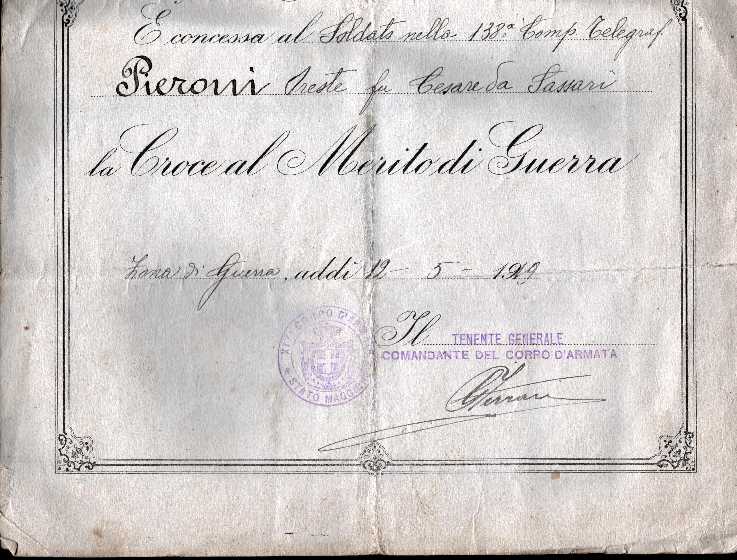 È concessa al Soldato nella 138ª Comp. Telegraf
Pieroni Oreste fu Cesare da Sassari
la Croce al Merito di Guerra
Zona di Guerra, addì 12 - 5 - 1919
Il TENENTE GENERALE
COMANDANTE DEL CORPO D'ARMATA
CORPO D'
STATO MAGGIORE